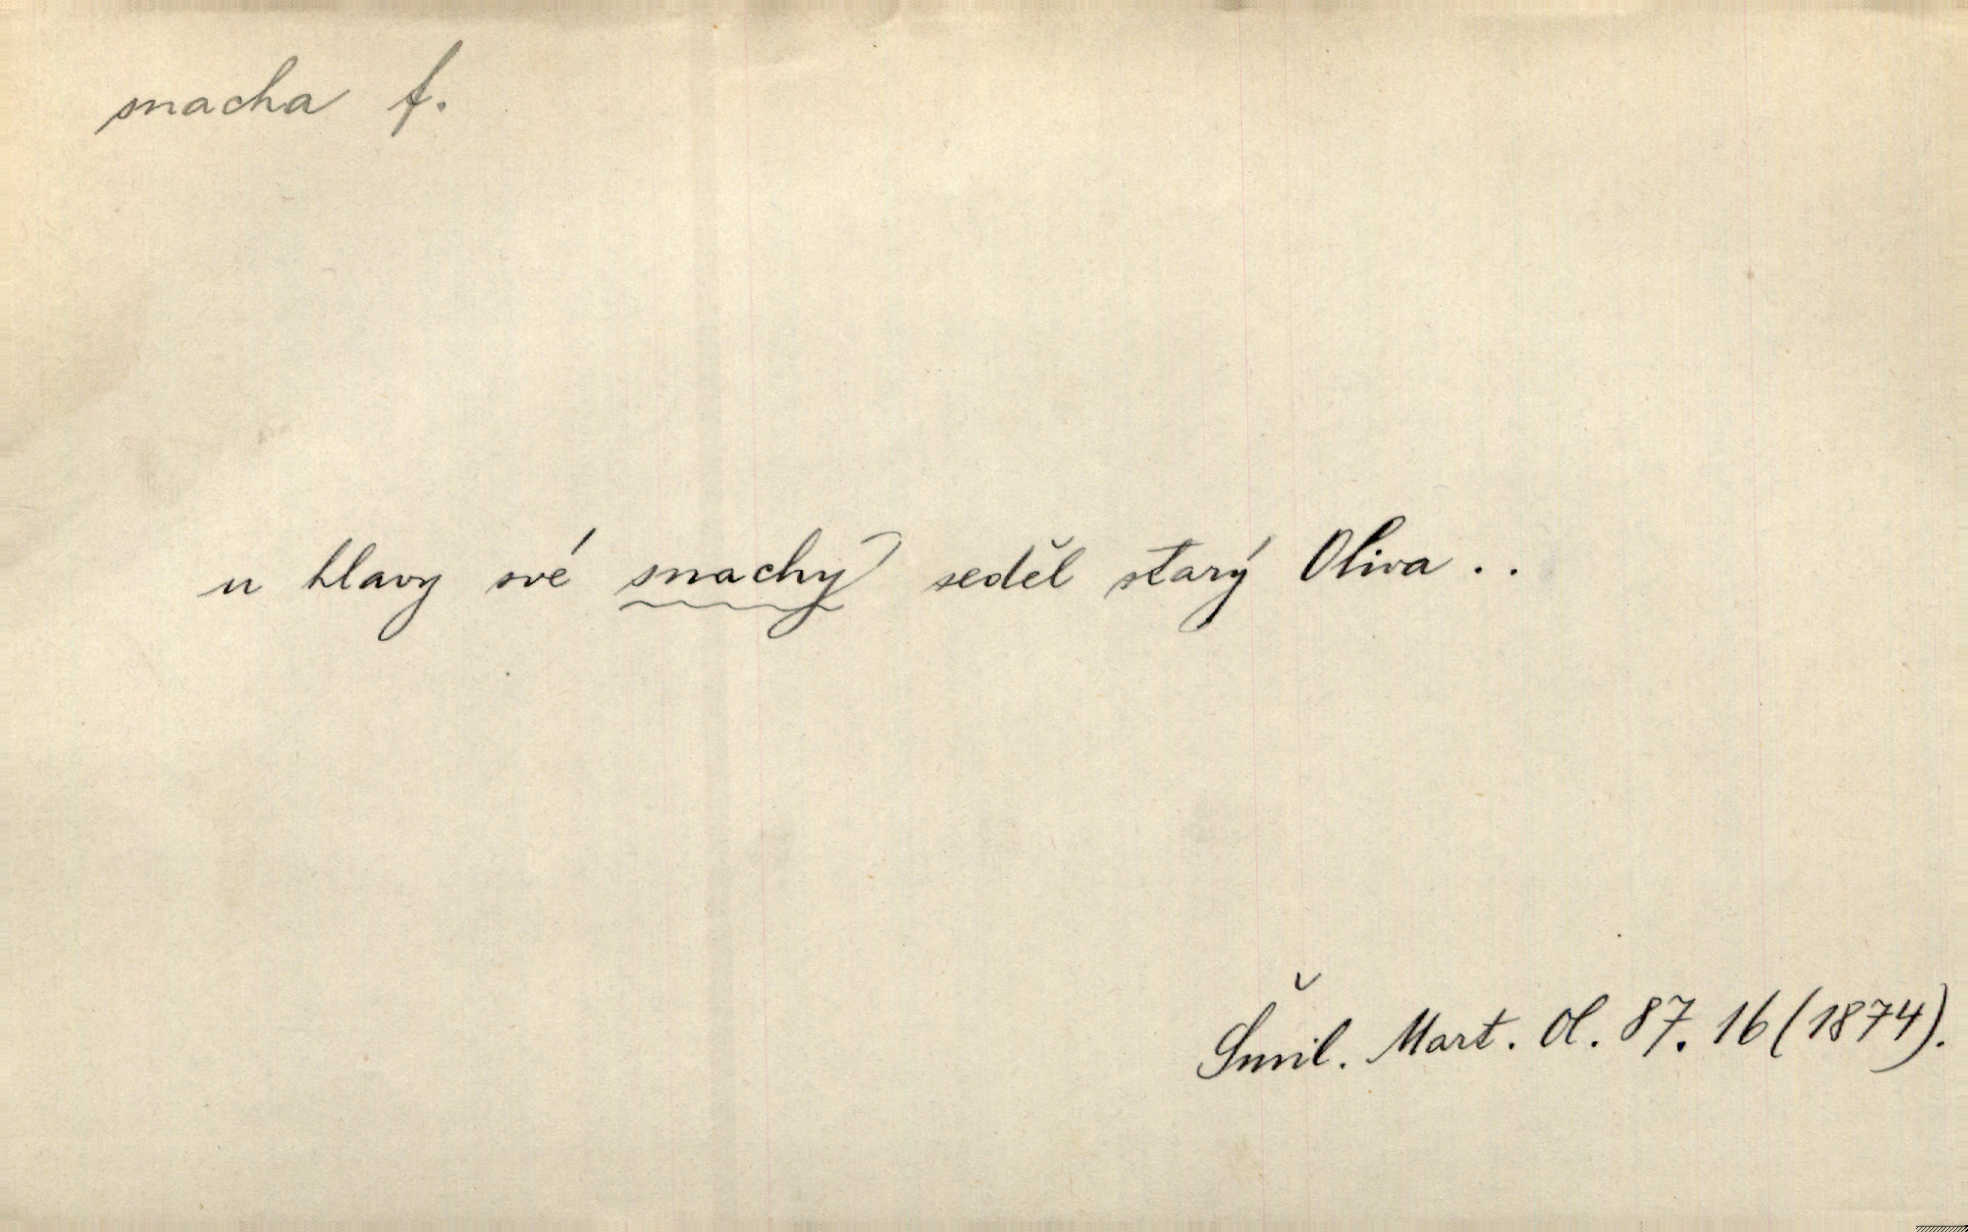 snacha f.
u hlavy své snachy seděl starý Oliva . .
Šmil. Mart. Ol. 87. 16 (1874).